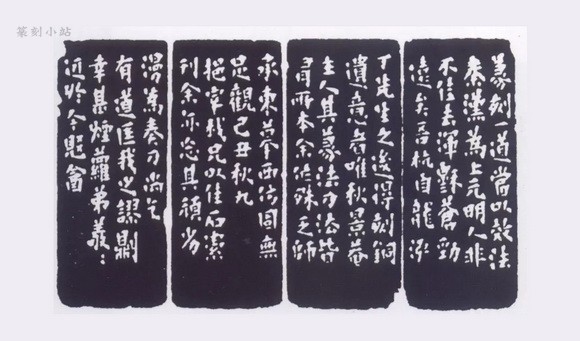 篆刻小站
篆刻一道當以效法
秦漢為上元明人非
不佳去渾穌蒼勁
遠矣吾杭自龍泓
丁先生之後得刻銅
遺意者唯秋景菴
主人其篆法刀法皆
有所本余法殊乏師
承東摹西仿固無
足觀己丑秋九
我兄以佳石索
刊余亦忘其頑劣
漫為奏刀尚乞
有道匡我之謬則
幸甚煙蘿弟
近於今題龕